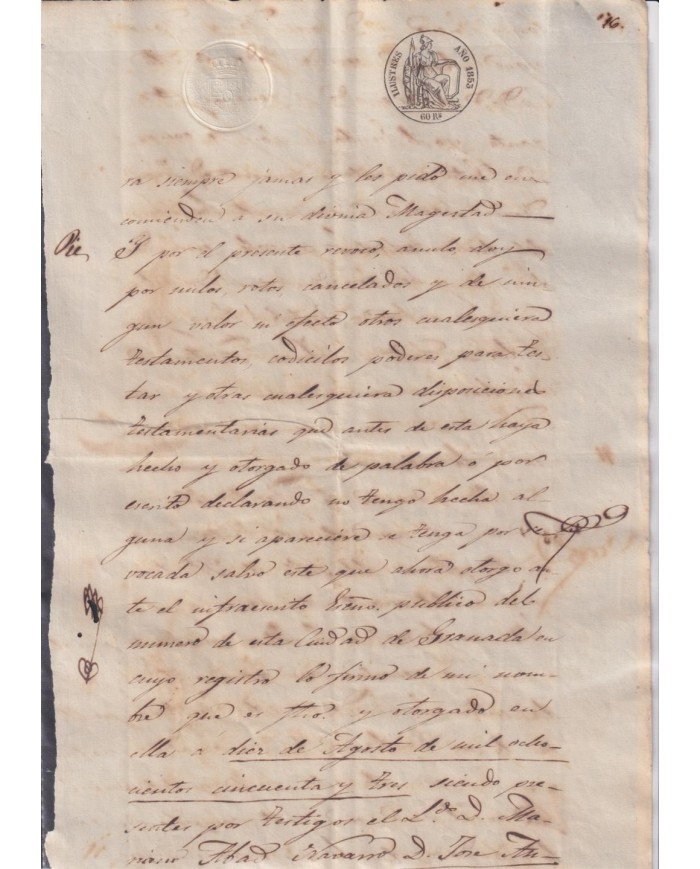 76.
ILUSTRES AÑO 1853
60 Rs
ra siempre jamas y les pido me en
comienden á su divina Magestad
Pie
Y por el presente revoco, anulo, doy
por nulos, rotos, cancelados y de nin-
gun valor ni efecto otros cualesquiera
testamentos, codicilos poderes para tes-
tar y otras cualesquiera disposiciones
testamentarias que antes de esta haya
hecho y otorgado de palabra ó por
escrito declarando no tengo hecha al-
guna y si apareciere se tenga por re
vocada salvo este que ahora otorgo an-
te el infraescrito Esno. publico del
numero de esta Ciudad de Granada en
cuyo registro lo firmo de mi nom-
bre que es fho. y otorgado en
ella á diez de Agosto de mil ocho-
cientos cincuenta y tres siendo pre-
sentes por testigos el Ldo. D. Ma-
riano Abad Navarro D. Jose An-